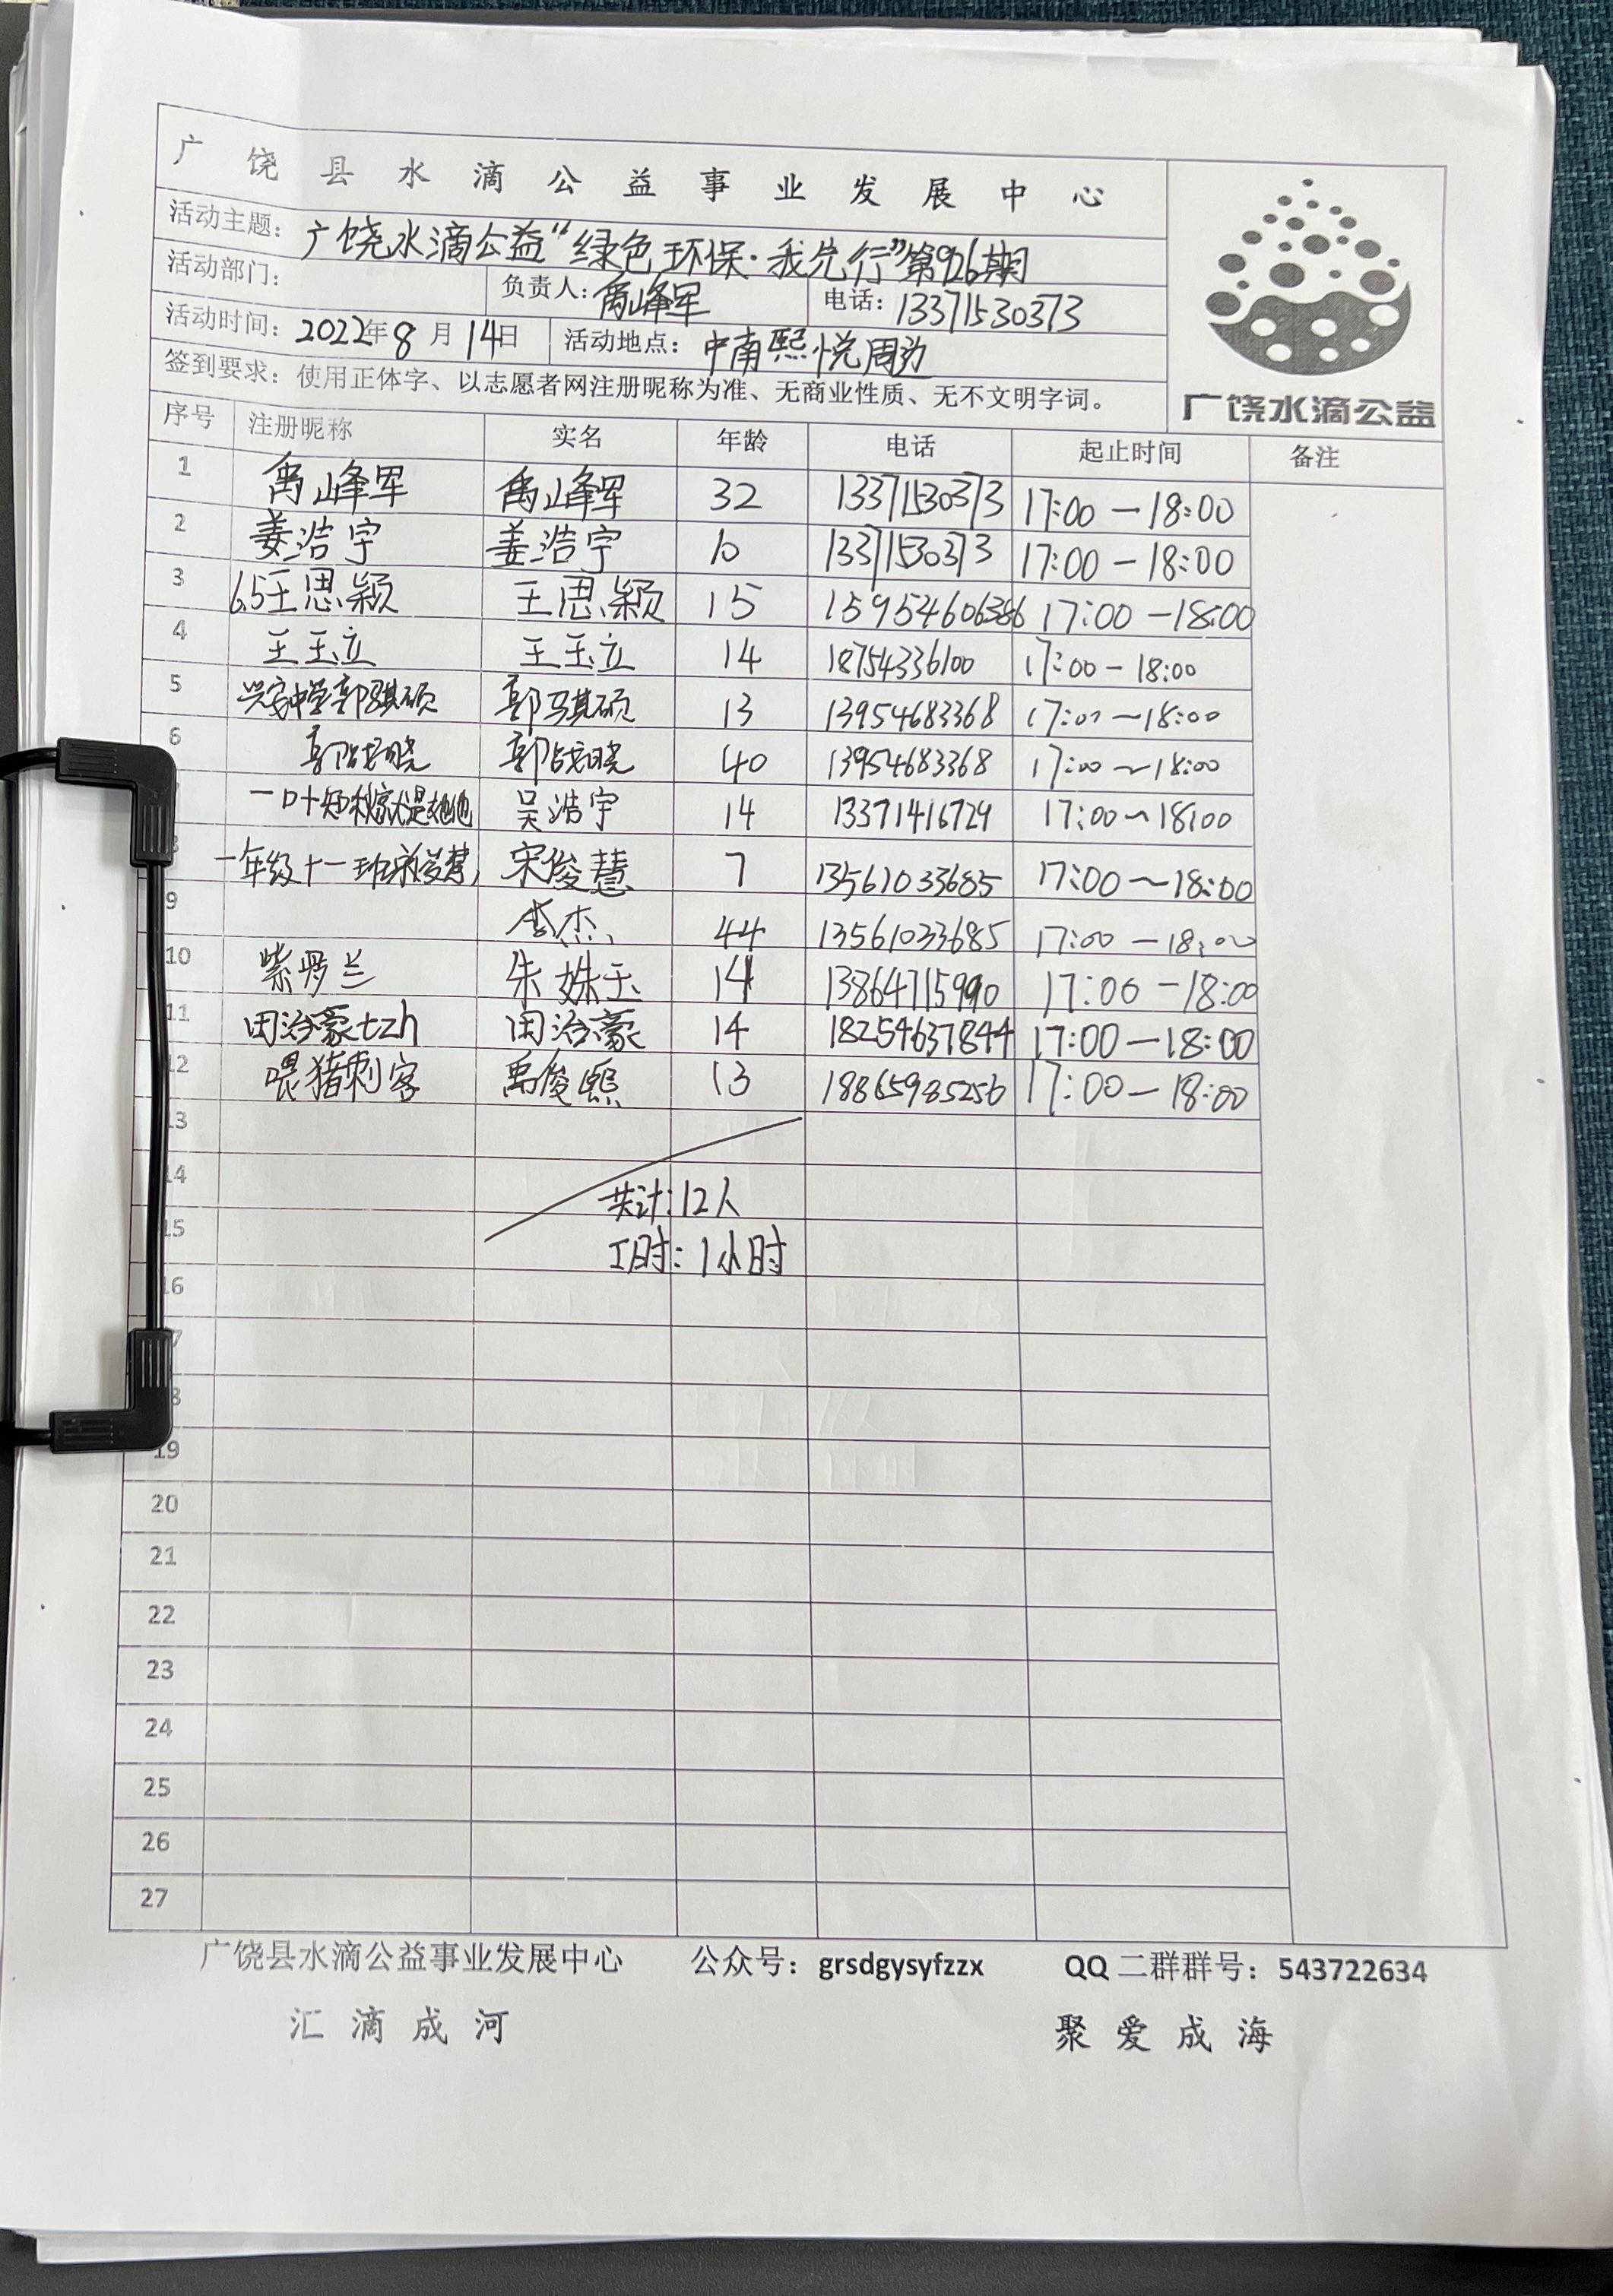 广饶县水滴公益事业发展中心
活动主题：广饶水滴公益“绿色环保·我先行”第926期
活动部门： 负责人：禹峰军 电话：13371530373
活动时间：2022年8月14日 活动地点：中南熙悦周边
签到要求：使用正体字、以志愿者网注册昵称为准、无商业性质、无不文明字词。
广饶水滴公益
序号 注册昵称 实名 年龄 电话 起止时间 备注
1 禹峰军 禹峰军 32 13371530373 17:00－18:00
2 姜浩宇 姜浩宇 10 13371530373 17:00－18:00
3 6.5王思颖 王思颖 15 15954606386 17:00－18:00
4 王玉立 王玉立 14 18754336100 17:00－18:00
5 兴安中学郭骐硕 郭骐硕 13 13954683368 17:00～18:00
6 郭战晓 郭战晓 40 13954683368 17:00～18:00
吴浩宇 14 13371416729 17:00～18:00
一年级十一班宋俊慧 宋俊慧 7 13561033685 17:00～18:00
9 李杰 44 13561033685 17:00－18:00
10 紫罗兰 朱姝玉 14 13864715990 17:00－18:00
11 田治豪tzh 田治豪 14 18254637844 17:00－18:00
12 喂猪刺客 禹俊熙 13 18865985256 17:00－18:00
13
14 共计：12人
15 工时：1小时
16
19
20
21
22
23
24
25
26
27
广饶县水滴公益事业发展中心 公众号：grsdgysyfzzx QQ 二群群号：543722634
汇滴成河 聚爱成海